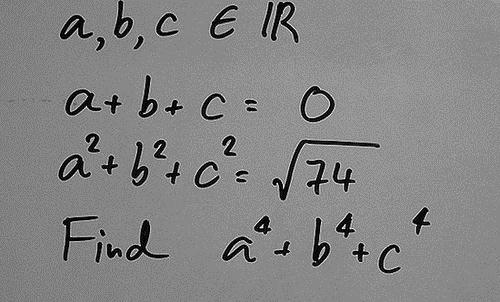 a, b, c ∈ ℝ
a + b + c = 0
a² + b² + c² = √74
Find a⁴ + b⁴ + c⁴